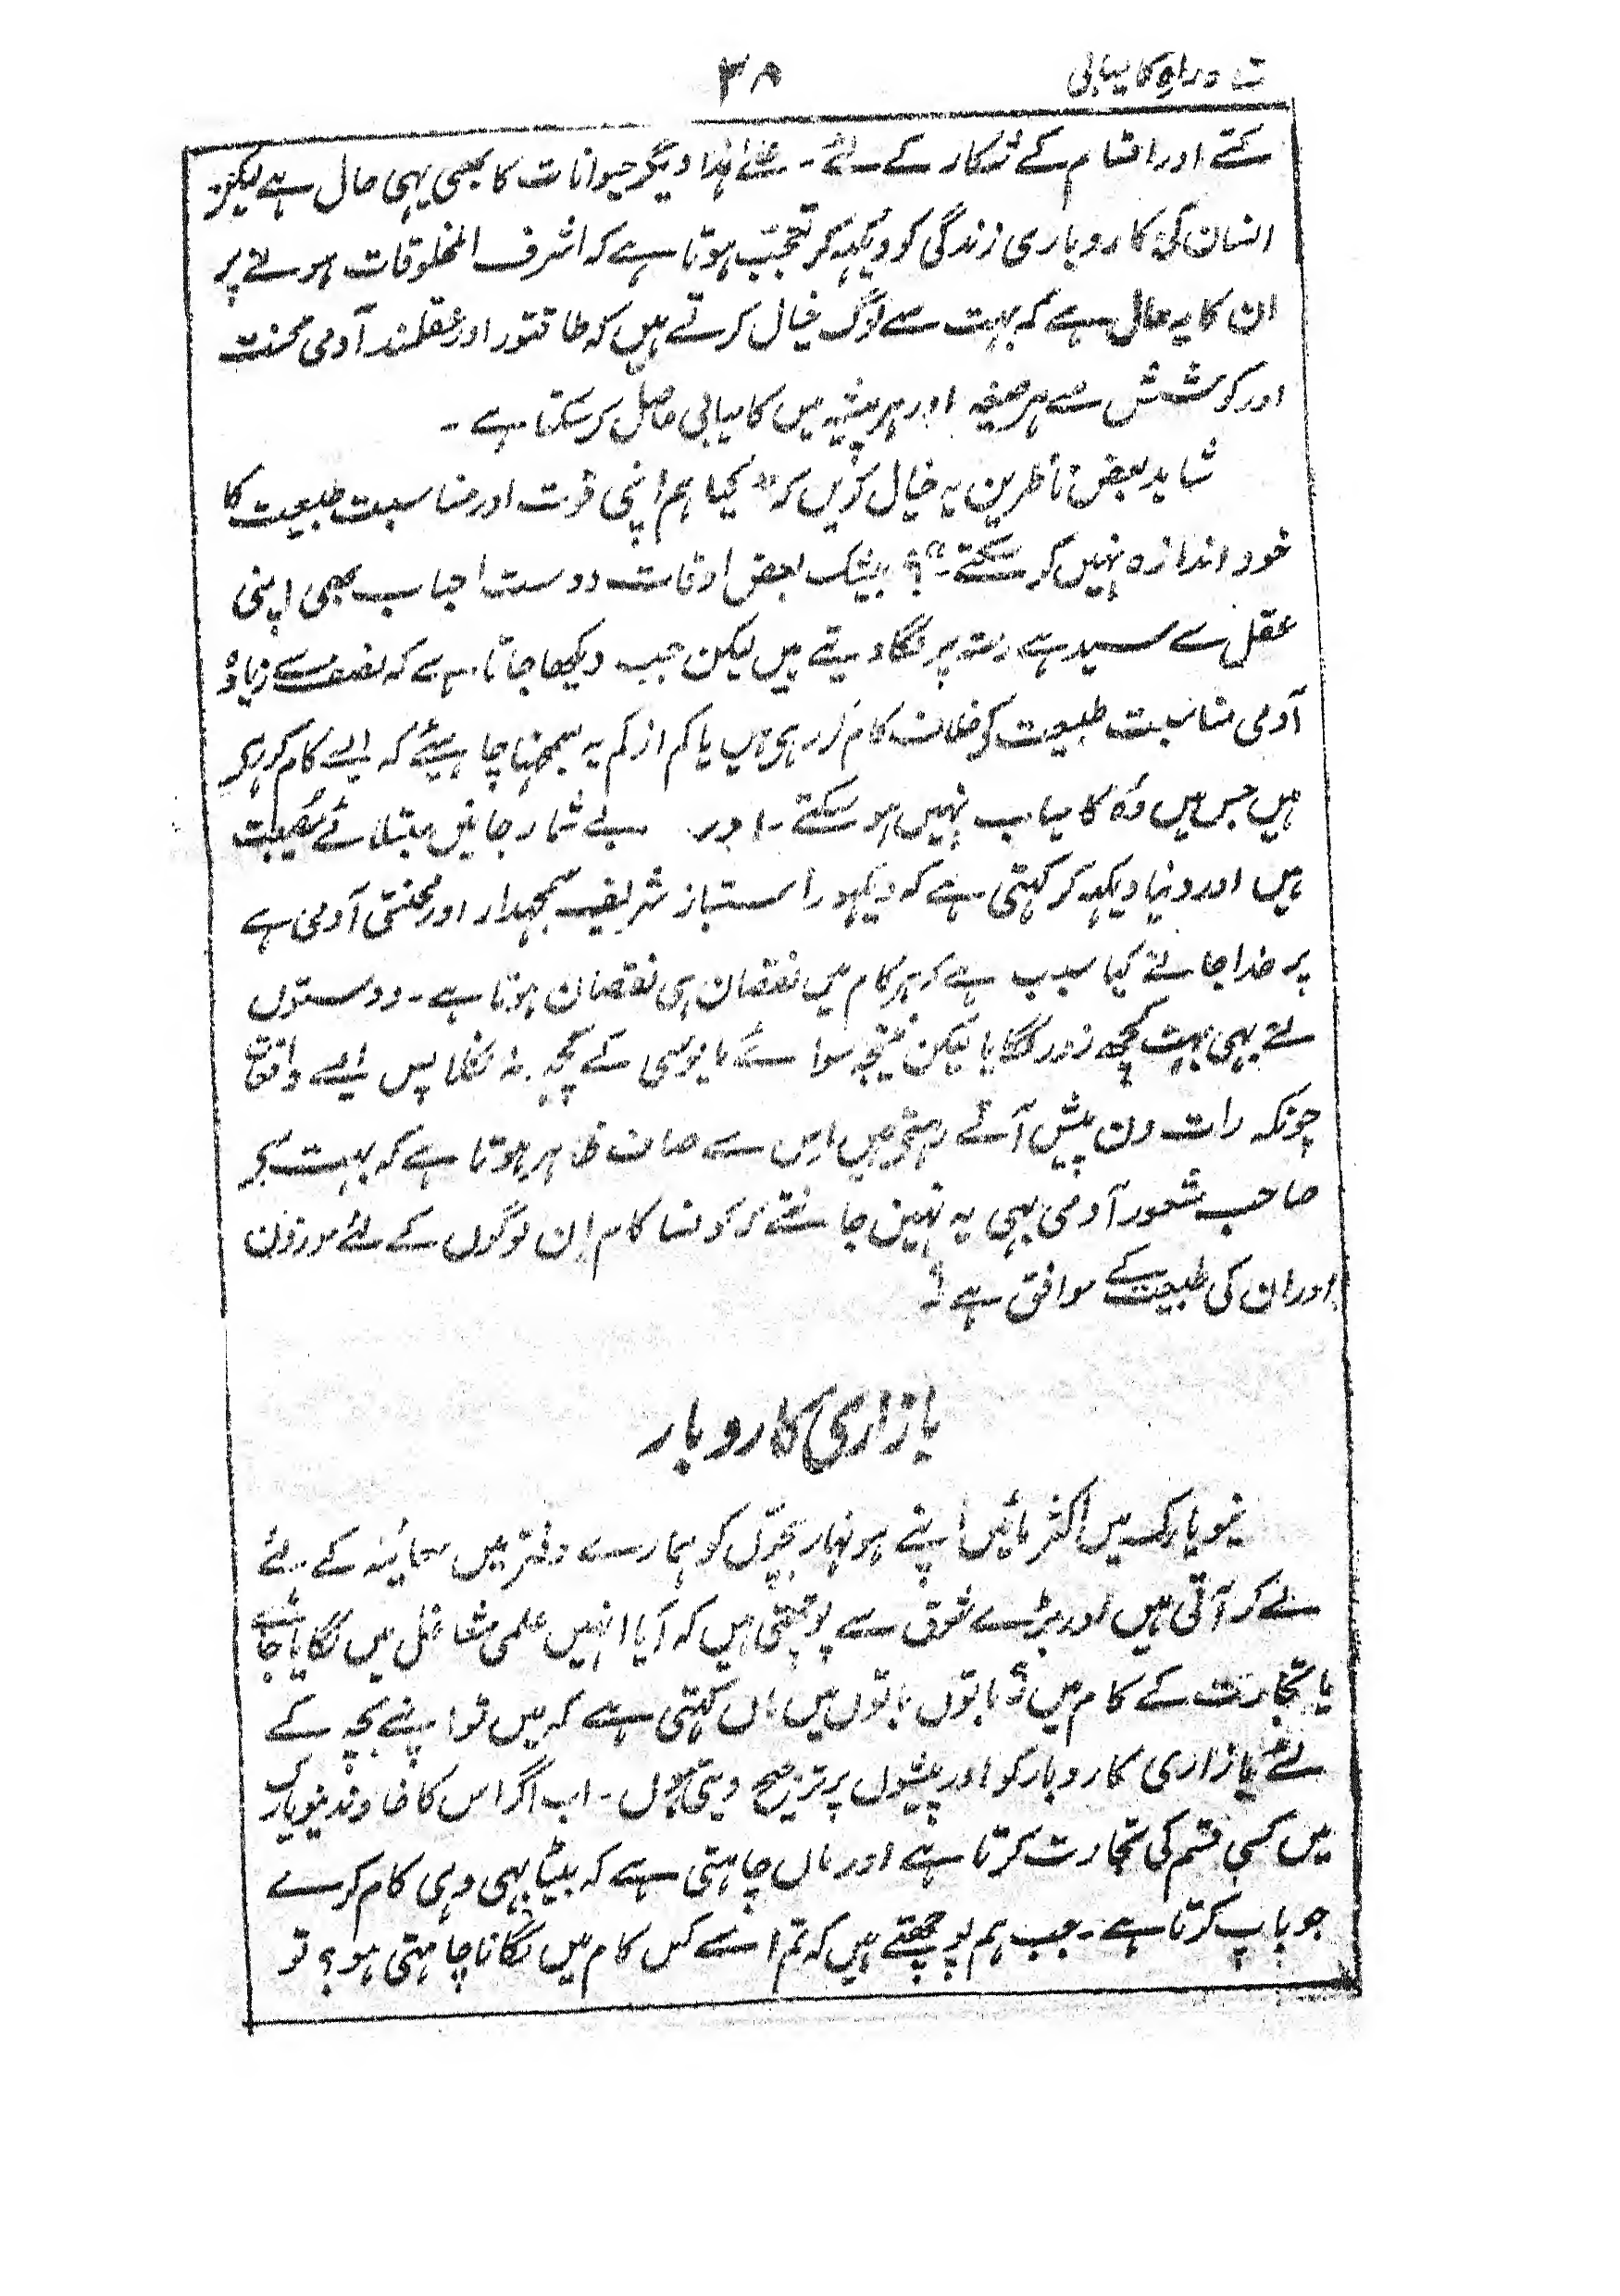 راہ کامیابی
۳۸
کتے اور اقسام کے شکار کے لئے۔ علےٰ ہٰذا دیگر حیوانات کا بھی یہی حال ہے لیکن
انسان کی کاروباری زندگی کو دیکہہ کر تعجّب ہوتا ہے کہ اشرف المخلوقات ہونے پر
ان کا یہ حال ہے کہ بہت سے لوگ خیال کرتے ہیں کہ طاقتور اور عقلمند آدمی محنت
اور کوشش سے ہر صیغہ اور ہر پیشہ میں کامیابی حاصل کر سکتا ہے۔
شاید بعض ناظرین یہ خیال کریں کہ "کیا ہم اپنی قوت اور مناسبت طبیعت کا
خود اندازہ نہیں کر سکتے"؟ بیشک بعض اوقات دوست احباب بھی اپنی
عقل سے سیدہے رستہ پر لگا دیتے ہیں لیکن جب دیکھا جاتا ہے کہ نصف سے زیادہ
آدمی مناسبت طبیعت کو خلاف کام کر رہی ہیں یا کم از کم یہ سمجہنا چاہیئے کہ ایسے کام کر رہی
ہیں جس میں وُہ کامیاب نہیں ہو سکتے۔ اور بے شمار جانیں مبتلائے مُصیبت
ہیں اور دنیا دیکہہ کر کہتی ہے کہ دیکہو راستباز شریف سمجہدار اور محنتی آدمی ہے
پر خدا جانے کیا سبب ہے کہ ہر کام میں نقصان ہی نقصان ہوتا ہے۔ دوستوں
نے بہی بہت کچھ زور لگایا لیکن نتیجہ سوائے مایوسی کے کچہہ نہ نکلا پس ایسے واقعات
چونکہ رات دن پیش آتے رہتی ہیں اس سے صاف ظاہر ہوتا ہے کہ بہت سے
صاحب شعور آدمی بہی یہ نہیں جانتے کہ کونسا کام اِن لوگوں کے لئے موزون
اور ان کی طبیعت کے موافق ہے؟
بازاری کاروبار
نیو یارک میں اکثر مائیں اپنے ہونہار بچّوں کو ہمارے دفتر میں معائینہ کے لئے
لے کر آتی ہیں اور بڑے شوق سے پوچہتی ہیں کہ آیا انہیں علمی مشاغل میں لگایا جائے
یا تجارت کے کام میں؟ باتوں باتوں میں ماں کہتی ہے کہ میں تو اپنے بچہ کے
لئے بازاری کاروبار کو اور پیشوں پر ترجیح دیتی ہوں۔ اب اگر اس کا خاوند نیو یارک
میں کسی قسم کی تجارت کرتا ہے اور ماں چاہتی ہے کہ بیٹا بہی وہی کام کرے
جو باپ کرتا ہے۔ جب ہم پوچھتے ہیں کہ تم اسے کس کام میں لگانا چاہتی ہو؟ تو